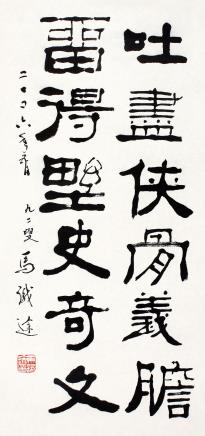 吐盡俠骨義膽
留得野史奇文
二〇〇六年月
九二叟 馬識途